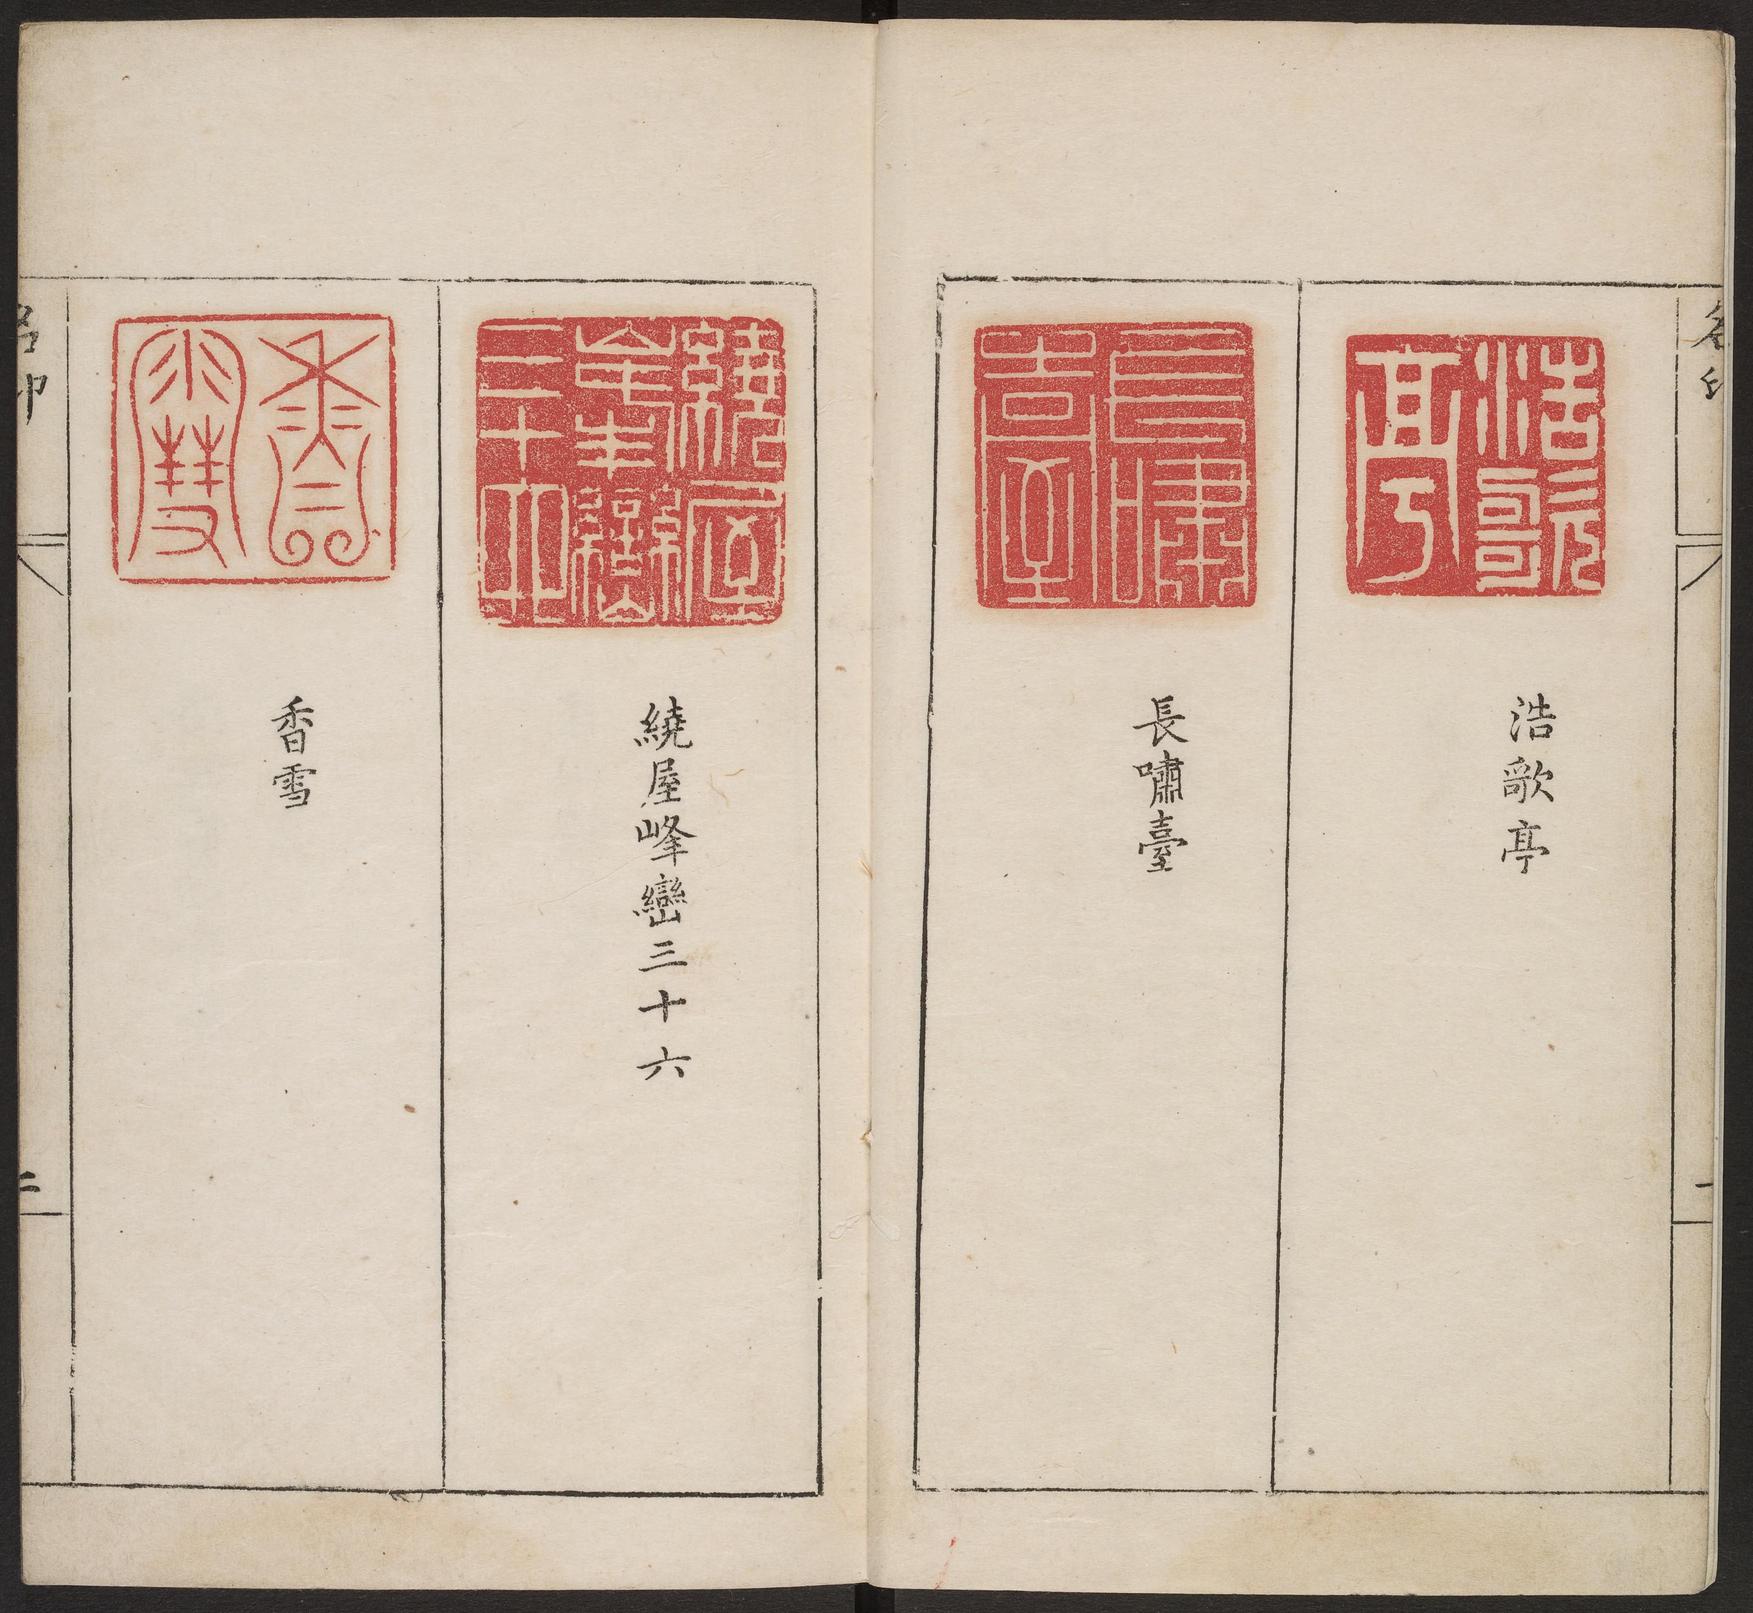 浩歌亭
浩歌亭
長嘯臺
長嘯臺
繞屋峰巒三十六
繞屋峰巒三十六
香雪
香雪
名印
二